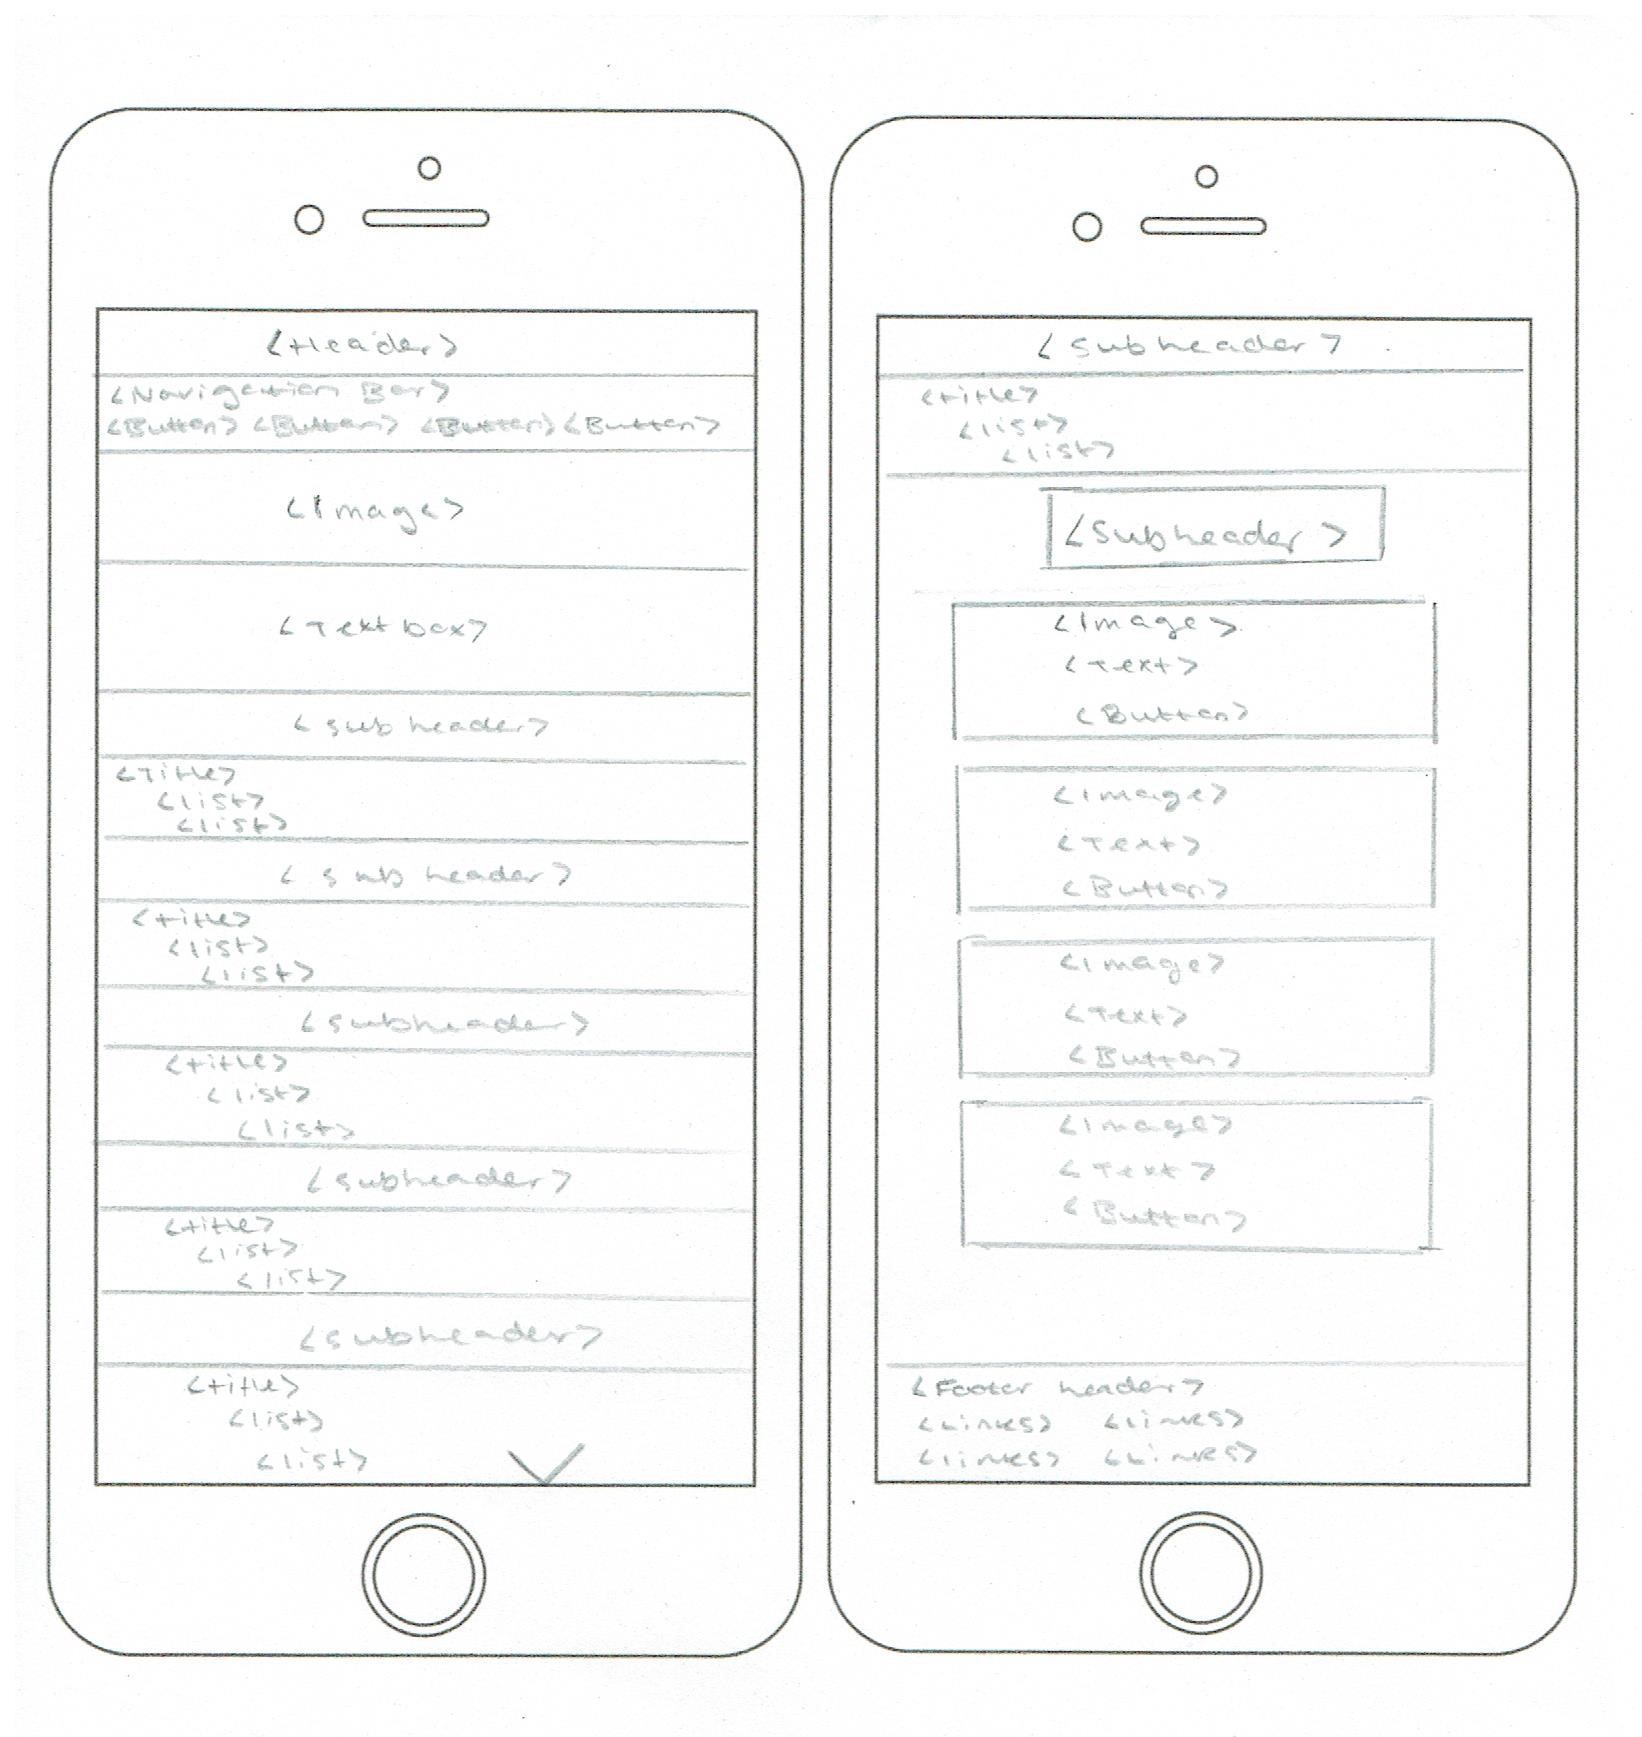 <Header>
<Navigation Bar>
<Button> <Button> <Button> <Button>
<Image>
<Text box>
<sub header>
<Title>
<list>
<list>
<sub header>
<title>
<list>
<list>
<subheader>
<title>
<list>
<list>
<subheader>
<title>
<list>
<list>
<subheader>
<title>
<list>
<list>
<subheader>
<title>
<list>
<list>
<Subheader>
<Image>
<Text>
<Button>
<Image>
<Text>
<Button>
<Image>
<Text>
<Button>
<Image>
<Text>
<Button>
<Footer header>
<Links> <Links>
<links> <Links>